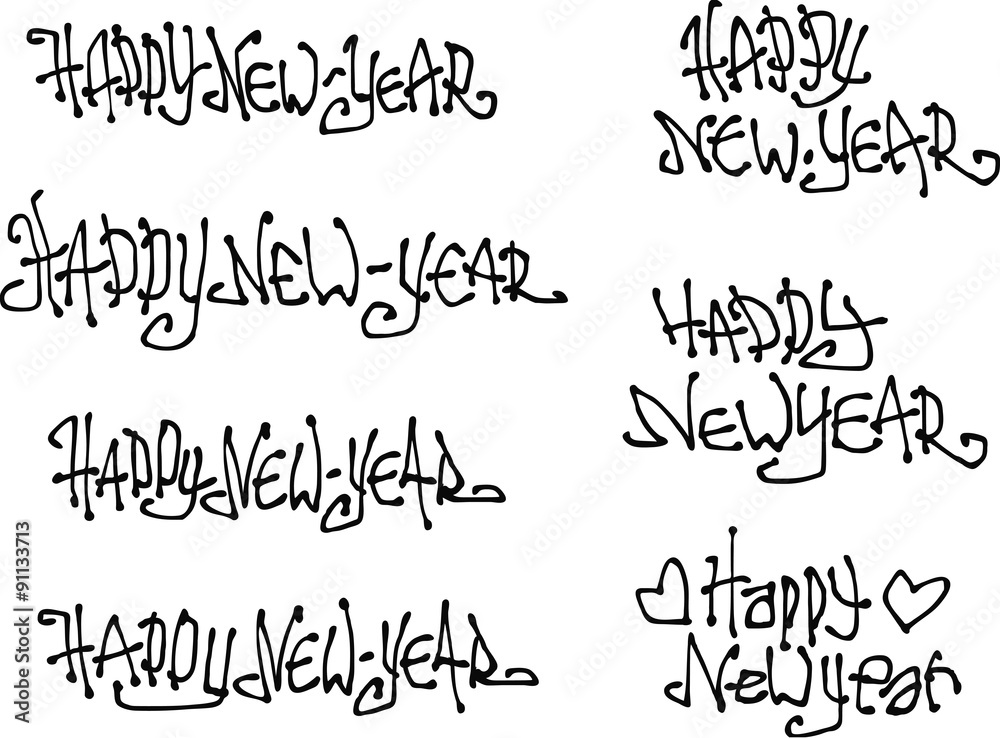 HAPPY NEW-YEAR
HAPPY NEW-YEAR
HAPPY NEW-YEAR
HAPPY NEW-YEAR
HAPPY
NEW-YEAR
HAPPY
NEW YEAR
Happy
New year
Adobe Stock | #91133713